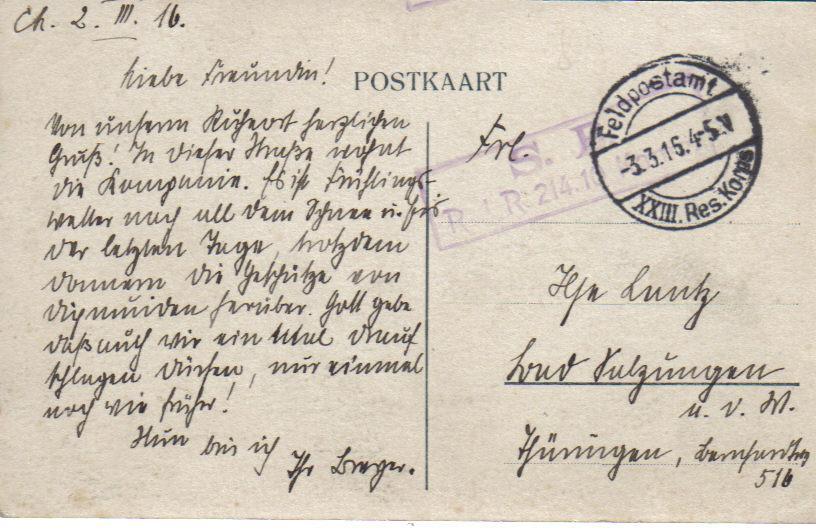 Ch. 2. III. 16.
Liebe Freundin!
Von unserm Ruheort herzlichen
Gruß! In dieser Straße wohnt
die Kompanie. Es ist Frühlings-
wetter nach all dem Schnee u. Eis
der letzten Tage, trotzdem
donnern die Geschütze von
Dixmuiden herüber. Gott gebe
daß auch wir ein Mal drauf
schlagen dürfen, nur einmal
noch wie früher!
Nun bin ich
Ihr
POSTKAART
Feldpostamt
-3.3.16.4-5.N
XXIII. Res. Korps
S. B.
R. I. R. 214.
Frl.
Ilse Lantz
Bad Salzungen
a. d. W.
Thüringen,
51b